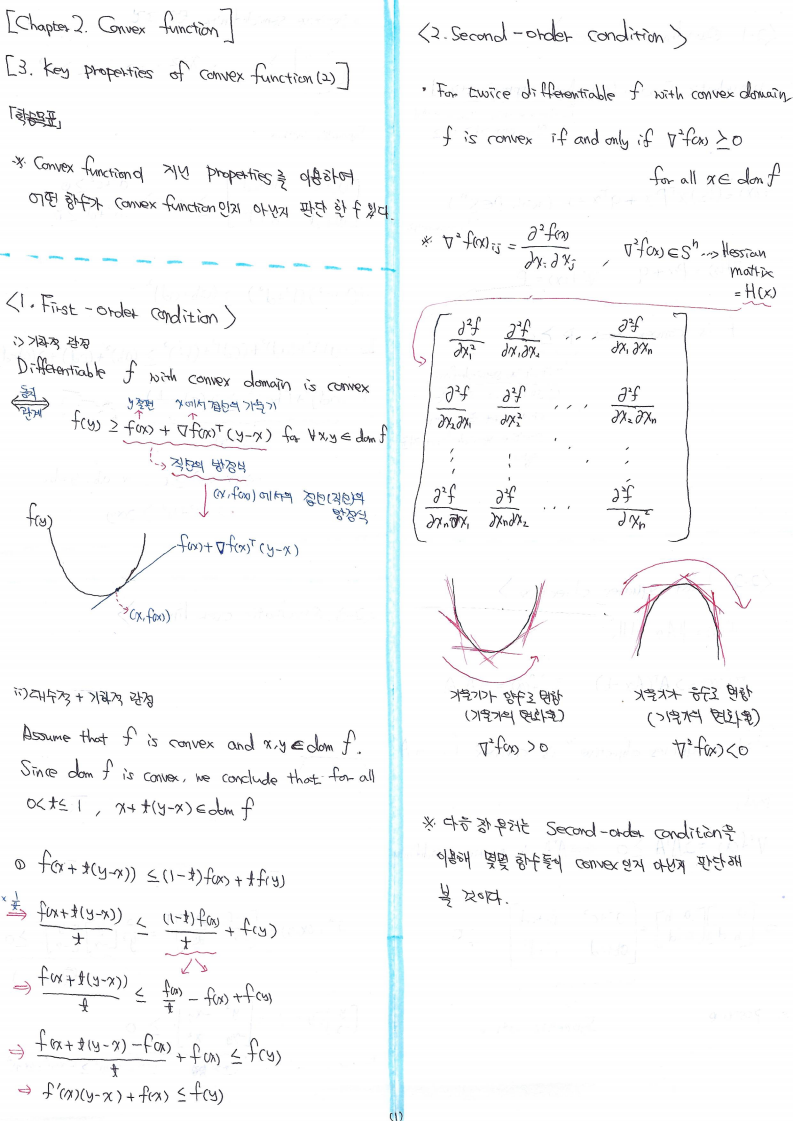 [Chapter 2. Convex function]
[3. Key properties of convex function(2)]
「학습목표」
※ Convex function이 지닌 properties를 이용하여
어떤 함수가 convex function인지 아닌지 판단 할 수 있다.
<1. First-order condition>
i) 기하적 관점
Differentiable f with convex domain is convex
동치
관계
y절편 x에서 접선의 기울기
f(y) ≥ f(x) + ∇f(x)ᵀ(y-x) for ∀x,y ∈ dom f
직선의 방정식
(x, f(x))에서의 접선(직선)의
방정식
f(y)
f(x) + ∇f(x)ᵀ(y-x)
(x, f(x))
ii) 대수적 + 기하적 관점
Assume that f is convex and x,y ∈ dom f.
Since dom f is convex, we conclude that for all
0<t≤1, x+t(y-x) ∈ dom f
① f(x+t(y-x)) ≤ (1-t)f(x) + tf(y)
× 1/t
⇒ f(x+t(y-x))/t ≤ (1-t)f(x)/t + f(y)
⇒ f(x+t(y-x))/t ≤ f(x)/t - f(x) + f(y)
⇒ f(x+t(y-x) - f(x)/t + f(x) ≤ f(y)
⇒ f'(x)(y-x) + f(x) ≤ f(y)
<2. Second-order condition>
· For twice differentiable f with convex domain
f is convex if and only if ∇²f(x) ≥ 0
for all x ∈ dom f
※ ∇²f(x)ij = ∂²f(x)/∂xi∂xj , ∇²f(x) ∈ Sⁿ → Hessian
matrix
= H(x)
∂²f/∂x₁² ∂²f/∂x₁∂x₂ ... ∂²f/∂x₁∂xn
∂²f/∂x₂∂x₁ ∂²f/∂x₂² ... ∂²f/∂x₂∂xn
∂²f/∂xn∂x₁ ∂²f/∂xn∂x₂ ... ∂²f/∂xn²
기울기가 양수로 변함 기울기가 음수로 변함
(기울기의 변화율) (기울기의 변화율)
∇²f(x) > 0 ∇²f(x) < 0
※ 다음 장부터는 Second-order condition을
이용해 몇몇 함수들이 convex인지 아닌지 판단해
볼 것이다.
(1)